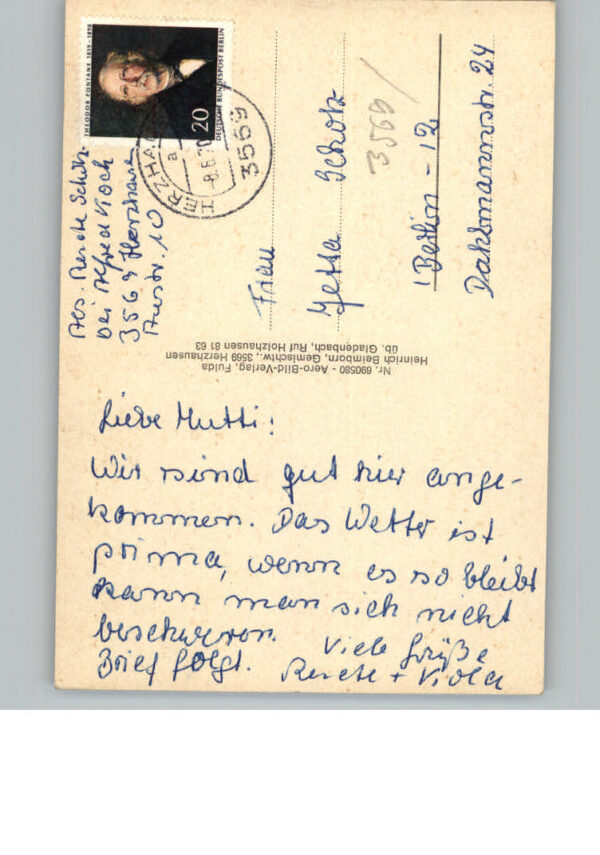 THEODOR FONTANE 1819-1898
20
DEUTSCHE BUNDESPOST BERLIN
3569
a
HERZHAUSEN
Abs.
bei Alfred Koch
3569 Herzhausen
10
Frau
Jetta Scholz
3569/
1 Berlin - 12
Dahlmannstr. 24
Nr. 690580 - Aero-Bild-Verlag, Fulda
Heinrich Beimborn, Gemischtw., 3569 Herzhausen
üb. Gladenbach, Ruf Holzhausen 81 63
Liebe Mutti!
Wir sind gut hier ange-
kommen. Das Wetter ist
prima, wenn es so bleibt
kann man sich nicht
beschweren.
Brief folgt.
Viele Grüße
+ Viola